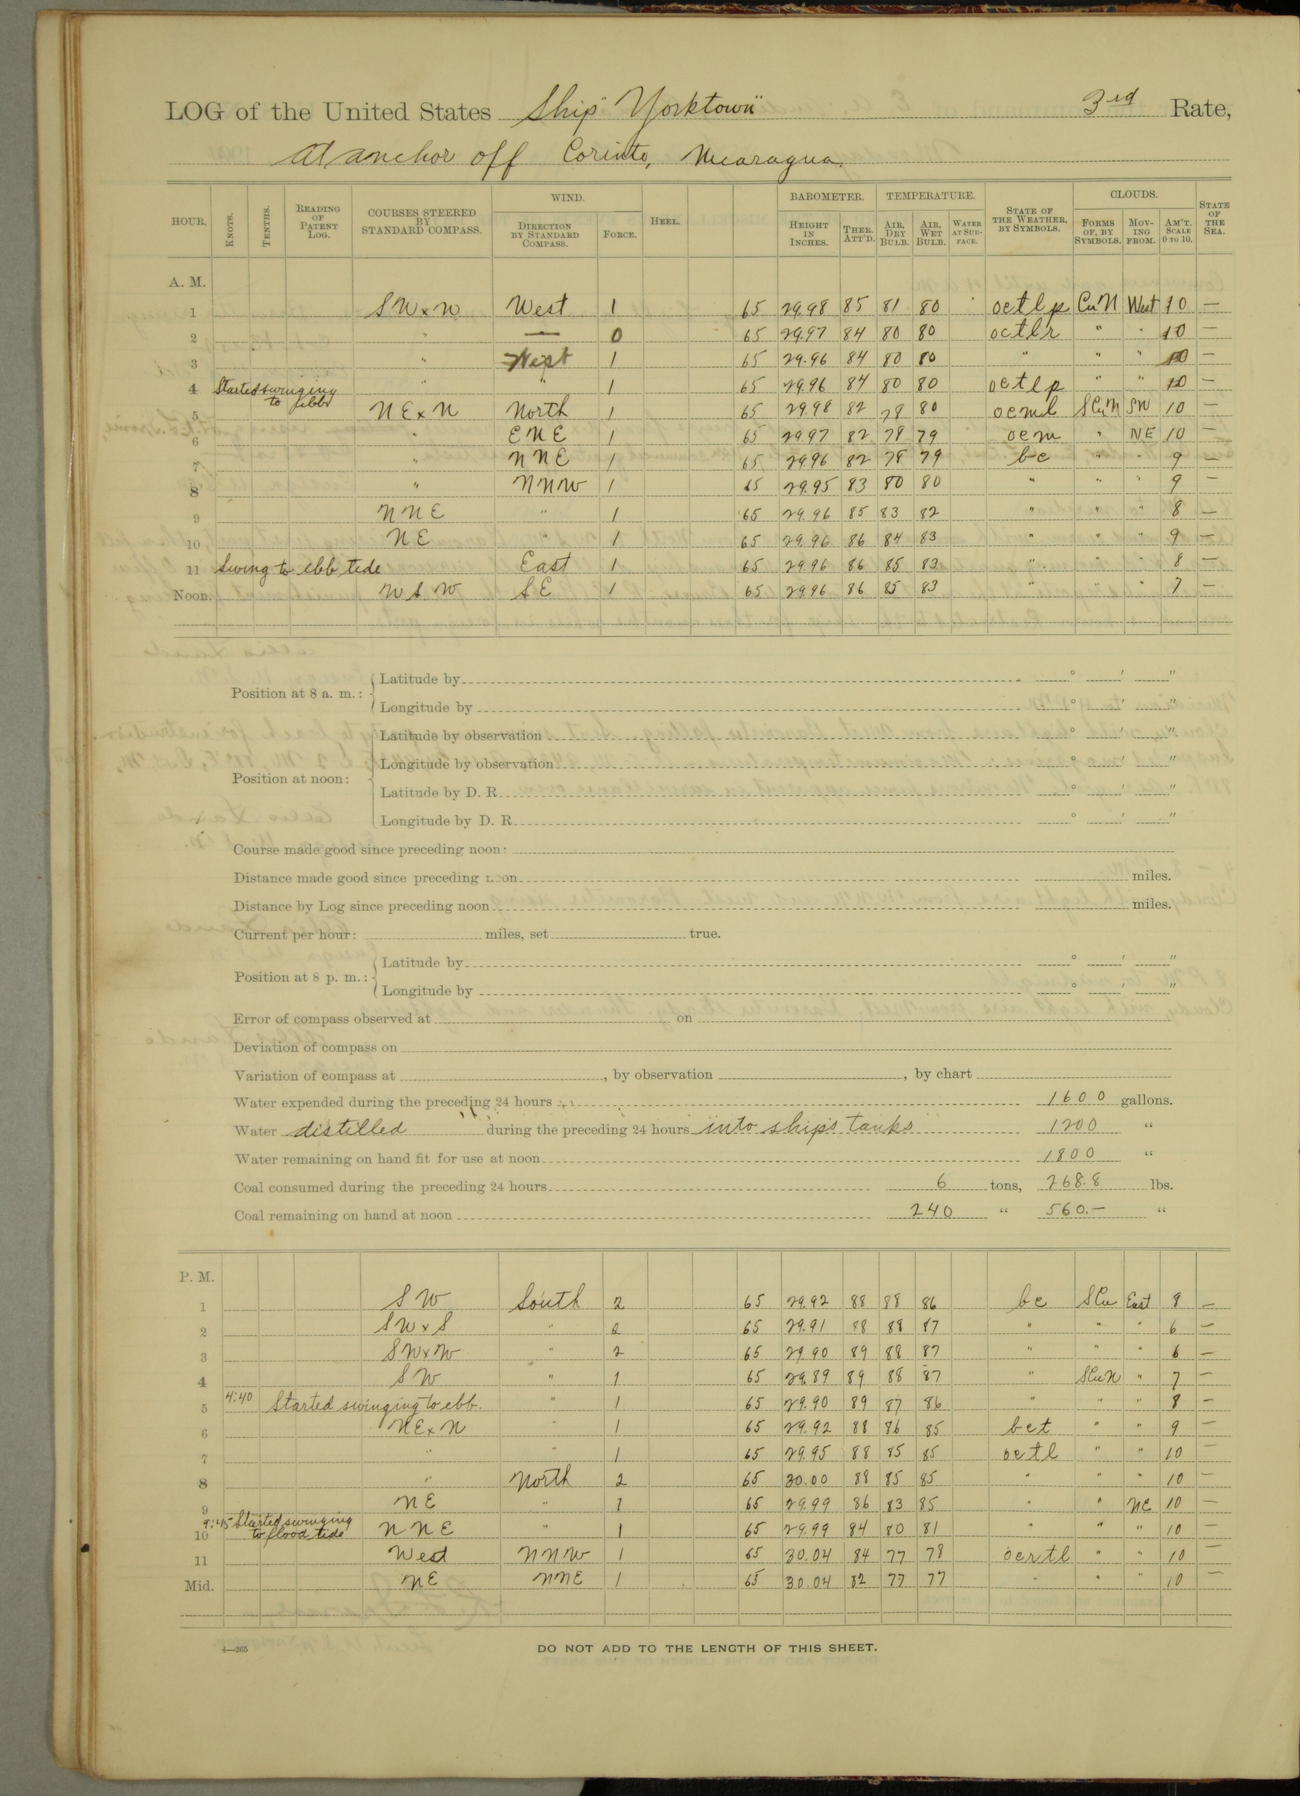 LOG of the United States Ship "Yorktown" 3rd Rate,
At anchor off Corinto, Nicaragua.
HOUR. KNOTS. TENTHS. READING OF PATENT LOG. COURSES STEERED BY STANDARD COMPASS. WIND. DIRECTION BY STANDARD COMPASS. FORCE. HEEL. BAROMETER. HEIGHT IN INCHES. THER. ATT'D. TEMPERATURE. AIR, DRY BULB. AIR, WET BULB. WATER AT SURFACE. STATE OF THE WEATHER, BY SYMBOLS. CLOUDS. FORMS OF, BY SYMBOLS. MOVING FROM. AM'T. SCALE 0 TO 10. STATE OF THE SEA.
A. M.
1 SWxW West 1 65 29.98 85 81 80 " octlp CuN West 10 —
2 " — 0 65 29.97 84 80 80 octlr " " 10 —
3 " West 1 65 29.96 84 80 80 " " " 10 —
4 Started swinging to flood " " 1 65 29.96 84 80 80 octlp " " 10 —
5 NExN North 1 65 29.98 82 78 80 ocml SCuN SW 10 —
6 " ENE 1 65 29.97 82 78 79 ocm " NE 10 —
7 " NNE 1 65 29.96 82 78 79 bc " " 9 —
8 " NNW 1 65 29.95 83 80 80 " " " 9 —
9 NNE " 1 65 29.96 85 83 82 " " " 8 —
10 NE " 1 65 29.96 86 84 83 " " " 9 —
11 Swing to ebb tide East 1 65 29.96 86 85 83 " " " 8 —
Noon. WSW SE 1 65 29.96 86 85 83 " " " 7 —
Position at 8 a. m.: Latitude by ° ′ ″
Longitude by ° ′ ″
Position at noon: Latitude by observation ° ′ ″
Longitude by observation ° ′ ″
Latitude by D. R. ° ′ ″
Longitude by D. R. ° ′ ″
Course made good since preceding noon:
Distance made good since preceding noon miles.
Distance by Log since preceding noon miles.
Current per hour: miles, set true.
Position at 8 p. m.: Latitude by ° ′ ″
Longitude by ° ′ ″
Error of compass observed at on
Deviation of compass on
Variation of compass at , by observation , by chart
Water expended during the preceding 24 hours 1600 gallons.
Water distilled during the preceding 24 hours into ship's tanks 1200 "
Water remaining on hand fit for use at noon 1800 "
Coal consumed during the preceding 24 hours 6 tons, 268.8 lbs.
Coal remaining on hand at noon 240 " 560.— "
P. M.
1 SW South 2 65 29.92 88 88 86 bc SCu East 8 —
2 SWxS " 2 65 29.91 88 88 87 " " " 6 —
3 SWxW " 2 65 29.90 89 88 87 " " " 6 —
4 SW " 1 65 29.89 89 88 87 " SCuN " 7 —
5 4:40 Started swinging to ebb. " 1 65 29.90 89 87 86 " " " 8 —
6 NExN " 1 65 29.92 88 86 85 bct " " 9 —
7 " " 1 65 29.95 88 85 85 octl " " 10 —
8 " North 2 65 30.00 88 85 85 " " " 10 —
9 NE " 1 65 29.99 86 83 85 " " NE 10 —
10 9:45 Started swinging to flood tide NNE " 1 65 29.99 84 80 81 " " " 10 —
11 West NNW 1 65 30.04 84 77 78 ocrtl " " 10 —
Mid. NE NNE 1 65 30.04 82 77 77 " " " 10 —
4—265
DO NOT ADD TO THE LENGTH OF THIS SHEET.